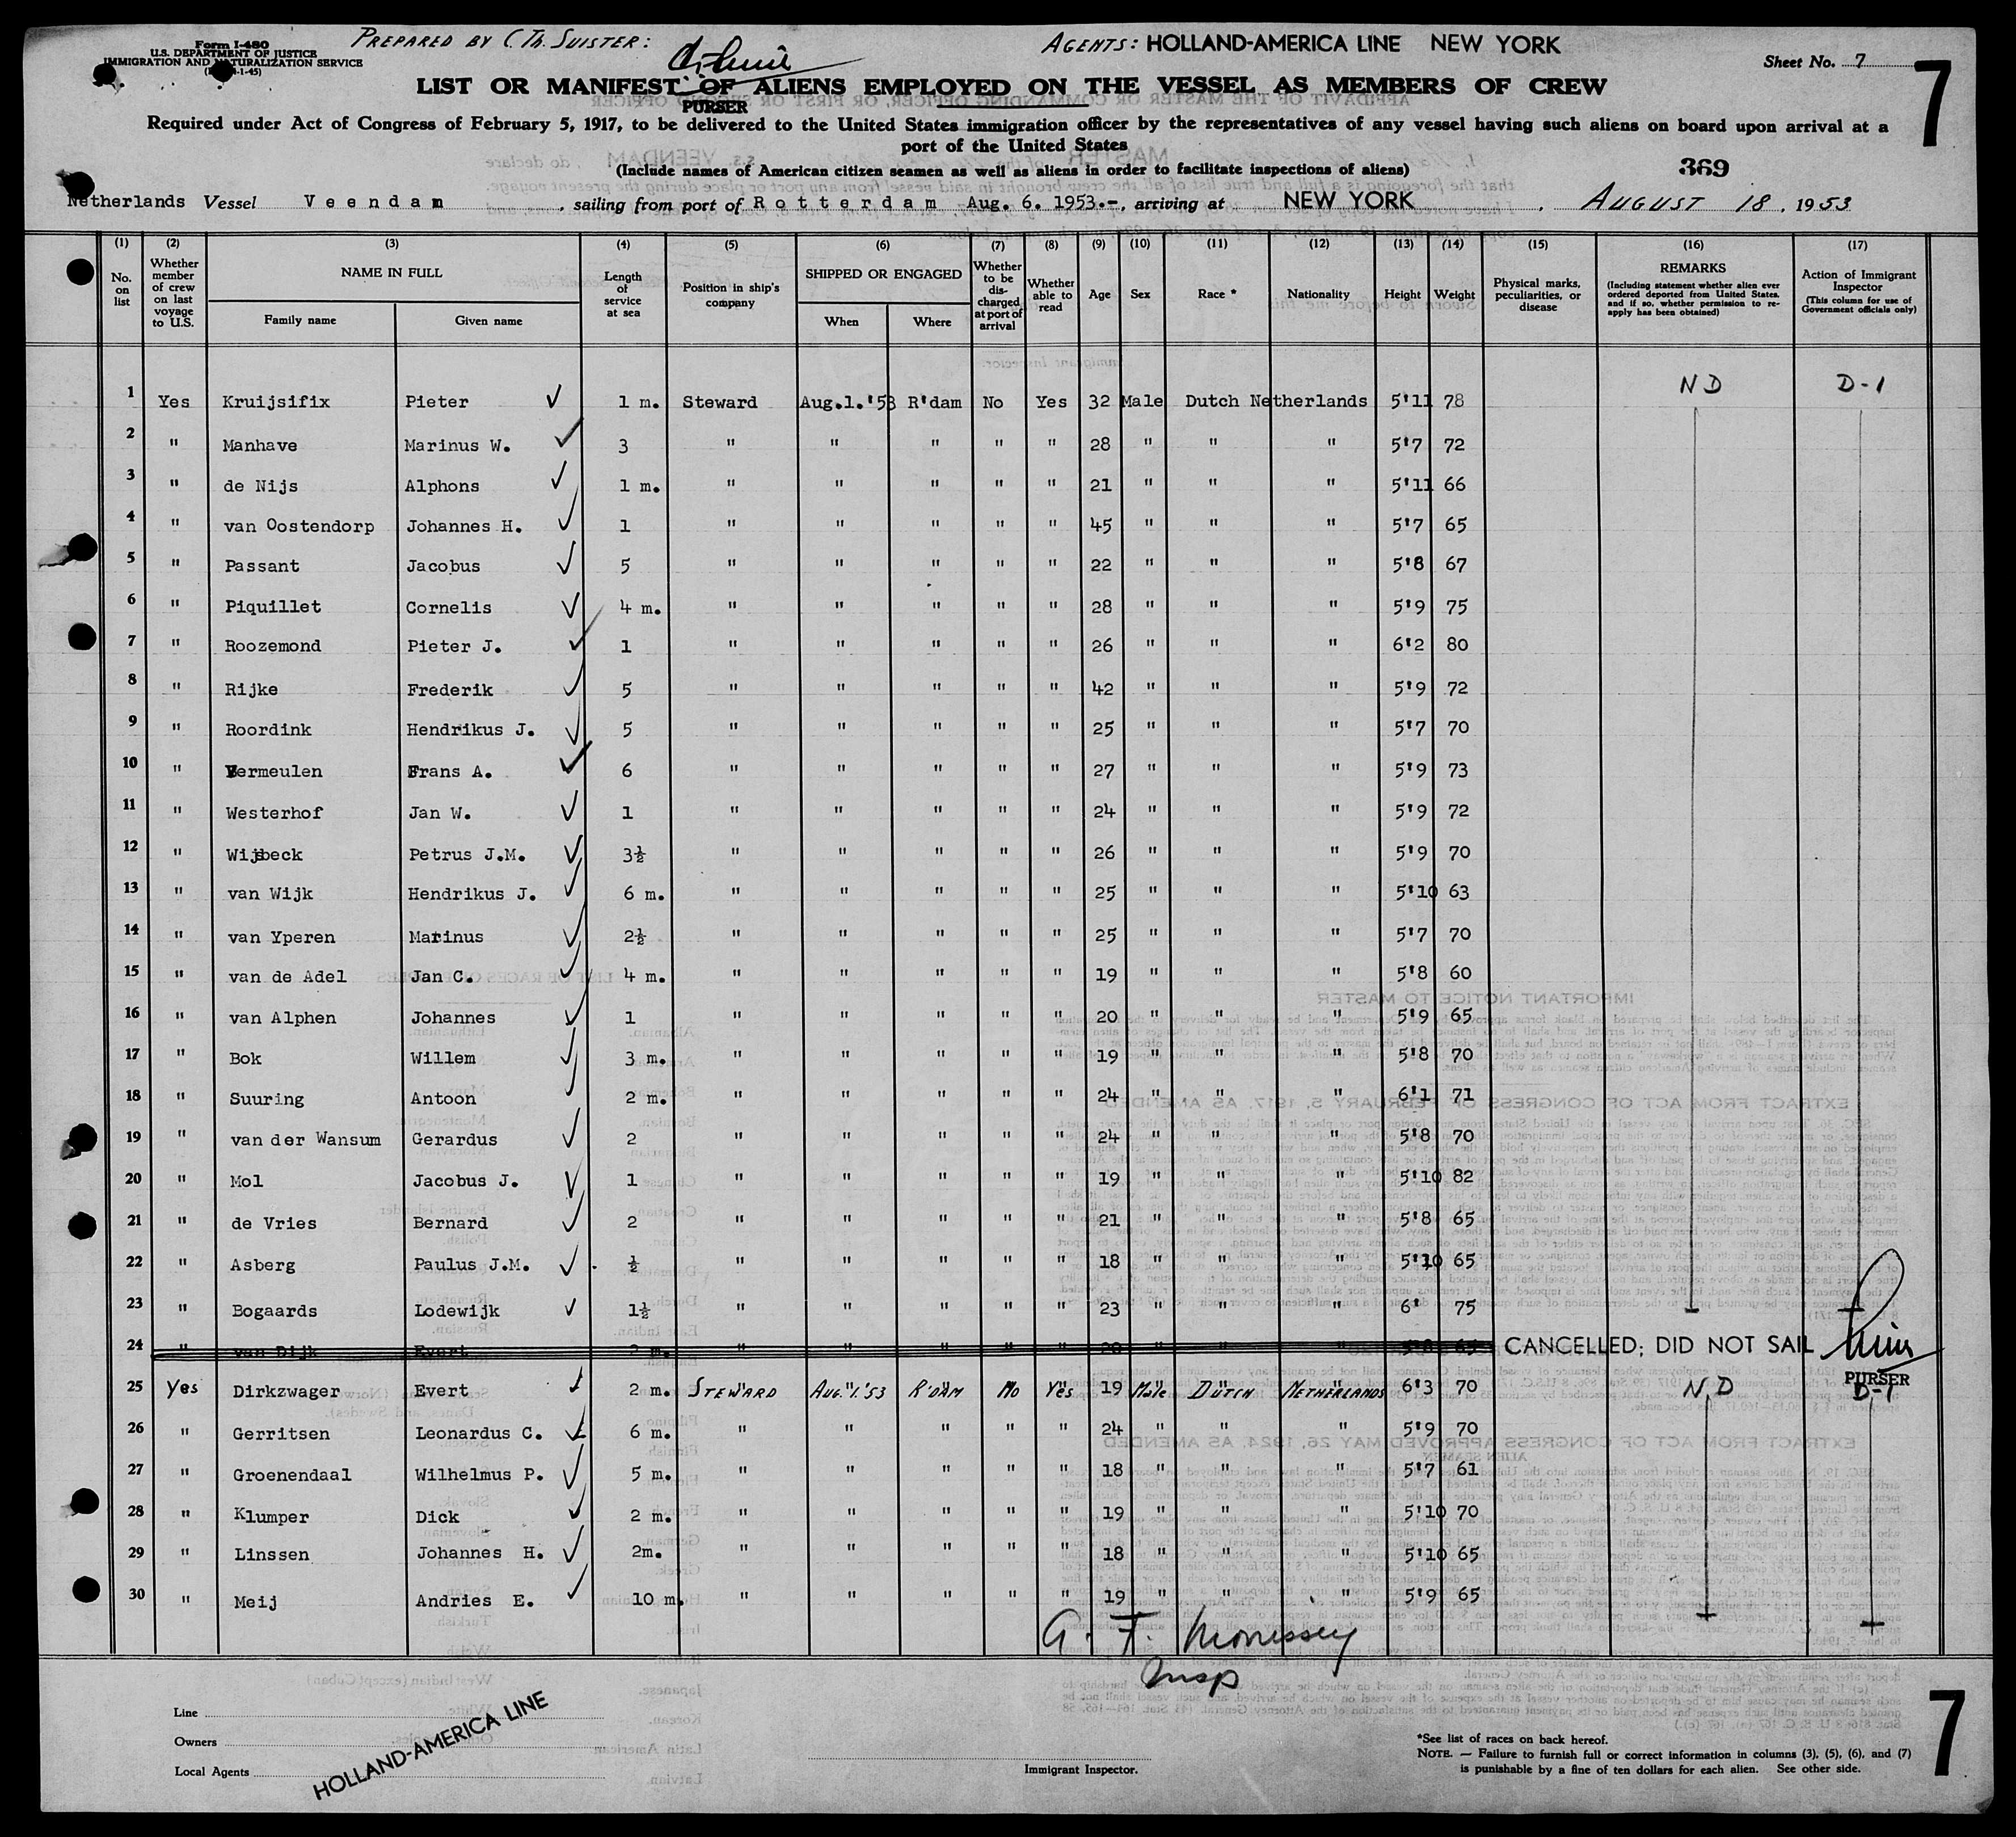 Form I-480
U.S. DEPARTMENT OF JUSTICE
IMMIGRATION AND NATURALIZATION SERVICE
PREPARED BY C. Th. SUISTER:
AGENTS: HOLLAND-AMERICA LINE NEW YORK
Sheet No. 7
7
LIST OR MANIFEST OF ALIENS EMPLOYED ON THE VESSEL AS MEMBERS OF CREW
PURSER
Required under Act of Congress of February 5, 1917, to be delivered to the United States immigration officer by the representatives of any vessel having such aliens on board upon arrival at a
port of the United States
(Include names of American citizen seamen as well as aliens in order to facilitate inspections of aliens)
369
Netherlands Vessel Veendam, sailing from port of Rotterdam Aug. 6. 1953.-, arriving at NEW YORK, AUGUST 18, 1953
(1) (2) (3) (4) (5) (6) (7) (8) (9) (10) (11) (12) (13) (14) (15) (16) (17)
No. on list | Whether member of crew on last voyage to U.S. | NAME IN FULL Family name Given name | Length of service at sea | Position in ship's company | SHIPPED OR ENGAGED When Where | Whether to be discharged at port of arrival | Whether able to read | Age | Sex | Race * | Nationality | Height | Weight | Physical marks, peculiarities, or disease | REMARKS (Including statement whether alien ever ordered deported from United States, and if so, whether permission to re-apply has been obtained) | Action of Immigrant Inspector (This column for use of Government officials only)
1 Yes Kruijsifix Pieter ✓ 1 m. Steward Aug.1.'53 R'dam No Yes 32 Male Dutch Netherlands 5'11 78 ND D-1
2 " Manhave Marinus W. ✓ 3 " " " " " 28 " " " 5'7 72
3 " de Nijs Alphons ✓ 1 m. " " " " " 21 " " " 5'11 66
4 " van Oostendorp Johannes H. ✓ 1 " " " " " 45 " " " 5'7 65
5 " Passant Jacobus ✓ 5 " " " " " 22 " " " 5'8 67
6 " Piquillet Cornelis ✓ 4 m. " " " " " 28 " " " 5'9 75
7 " Roozemond Pieter J. ✓ 1 " " " " " 26 " " " 6'2 80
8 " Rijke Frederik ✓ 5 " " " " " 42 " " " 5'9 72
9 " Roordink Hendrikus J. ✓ 5 " " " " " 25 " " " 5'7 70
10 " Vermeulen Frans A. ✓ 6 " " " " " 27 " " " 5'9 73
11 " Westerhof Jan W. ✓ 1 " " " " " 24 " " " 5'9 72
12 " Wijsbeck Petrus J.M. ✓ 3½ " " " " " 26 " " " 5'9 70
13 " van Wijk Hendrikus J. ✓ 6 m. " " " " " 25 " " " 5'10 63
14 " van Yperen Marinus ✓ 2½ " " " " " 25 " " " 5'7 70
15 " van de Adel Jan C. ✓ 4 m. " " " " " 19 " " " 5'8 60
16 " van Alphen Johannes ✓ 1 " " " " " 20 " " " 5'9 65
17 " Bok Willem ✓ 3 m. " " " " " 19 " " " 5'8 70
18 " Suuring Antoon ✓ 2 m. " " " " " 24 " " " 6'1 71
19 " van der Wansum Gerardus ✓ 2 " " " " " 24 " " " 5'8 70
20 " Mol Jacobus J. ✓ 1 " " " " " 19 " " " 5'10 82
21 " de Vries Bernard ✓ 2 " " " " " 21 " " " 5'8 65
22 " Asberg Paulus J.M. ✓ ½ " " " " " 18 " " " 5'10 65
23 " Bogaards Lodewijk ✓ 1½ " " " " " 23 " " " 6' 75
24 " van Dijk Evert 2 m. " " " " " 20 " " " 5'8 65 CANCELLED; DID NOT SAIL
PURSER
25 Yes Dirkzwager Evert ✓ 2 m. STEWARD AUG.1.'53 R'DAM No Yes 19 Male DUTCH NETHERLANDS 6'3 70 N.D D-1
26 " Gerritsen Leonardus C. ✓ 6 m. " " " " " 24 " " " 5'9 70
27 " Groenendaal Wilhelmus P. ✓ 5 m. " " " " " 18 " " " 5'7 61
28 " Klumper Dick ✓ 2 m. " " " " " 19 " " " 5'10 70
29 " Linssen Johannes H. ✓ 2m. " " " " " 18 " " " 5'10 65
30 " Meij Andries E. ✓ 10 m. " " " " " 19 " " " 5'9 65
Insp
Line
Owners
Local Agents
HOLLAND-AMERICA LINE
Immigrant Inspector.
*See list of races on back hereof.
NOTE. — Failure to furnish full or correct information in columns (3), (5), (6), and (7)
is punishable by a fine of ten dollars for each alien. See other side.
7